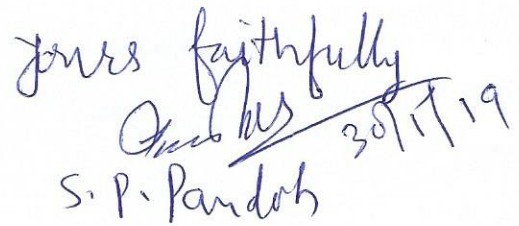 yours faithfully
30/1/19
S. P. Pandoh